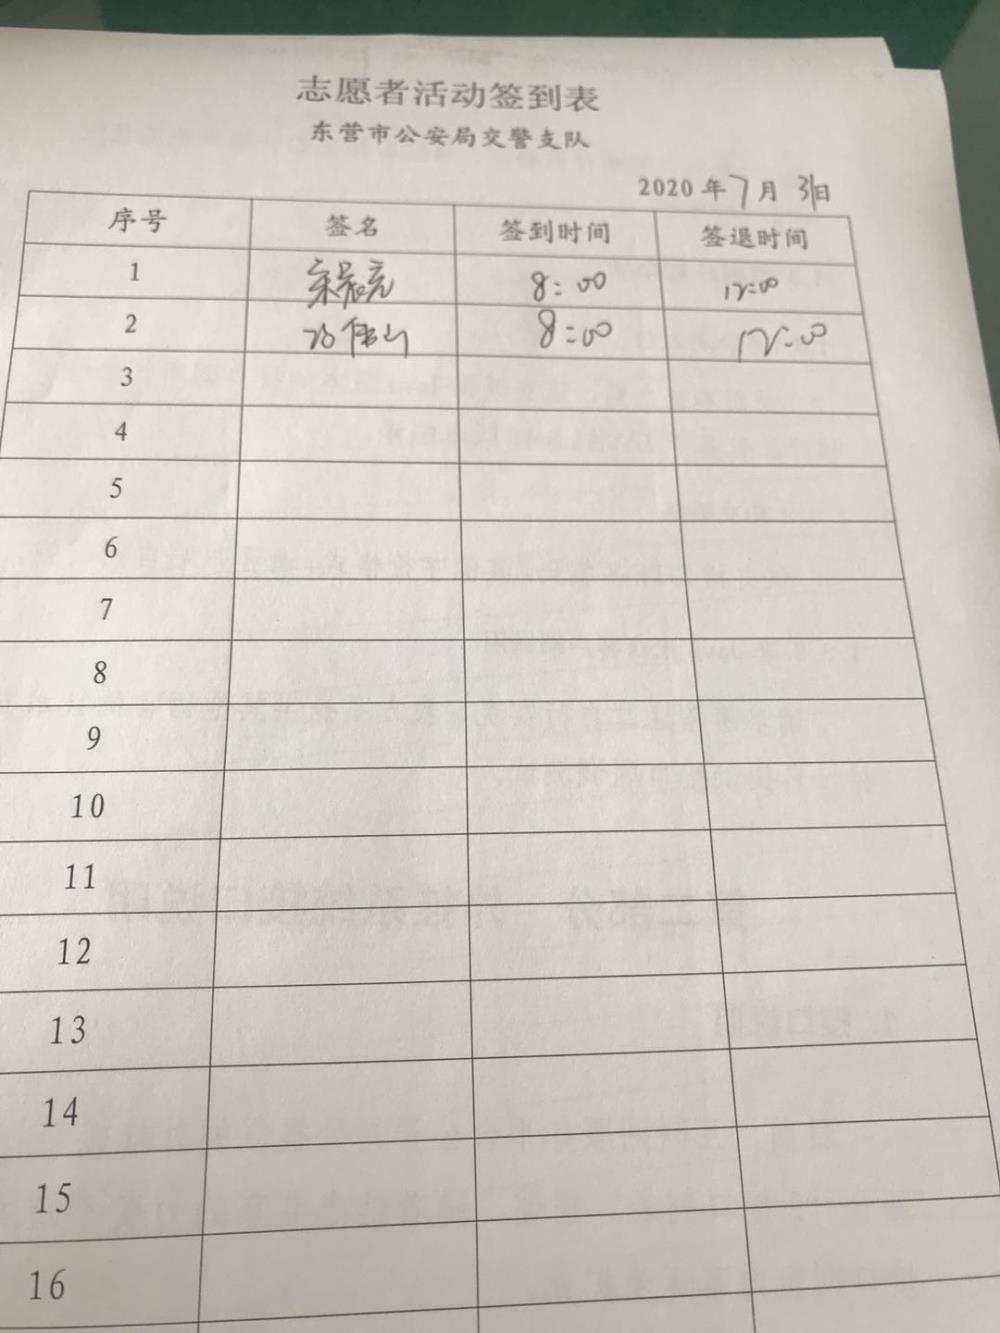 志愿者活动签到表
东营市公安局交警支队
2020年7月31日
序号 签名 签到时间 签退时间
1 8:00 12:00
2 8:00 12:00
3
4
5
6
7
8
9
10
11
12
13
14
15
16